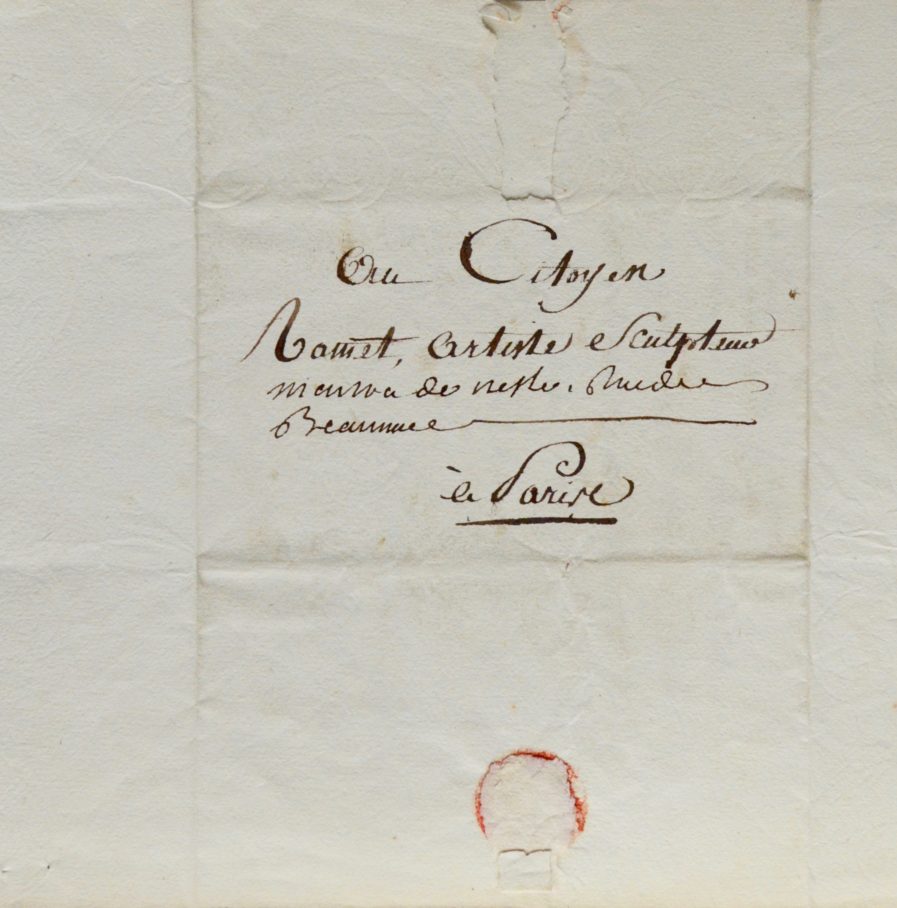 Au Citoyen
Ramet, artiste Sculpteur
maison de nesle, Rue de
Beaunne
à Paris